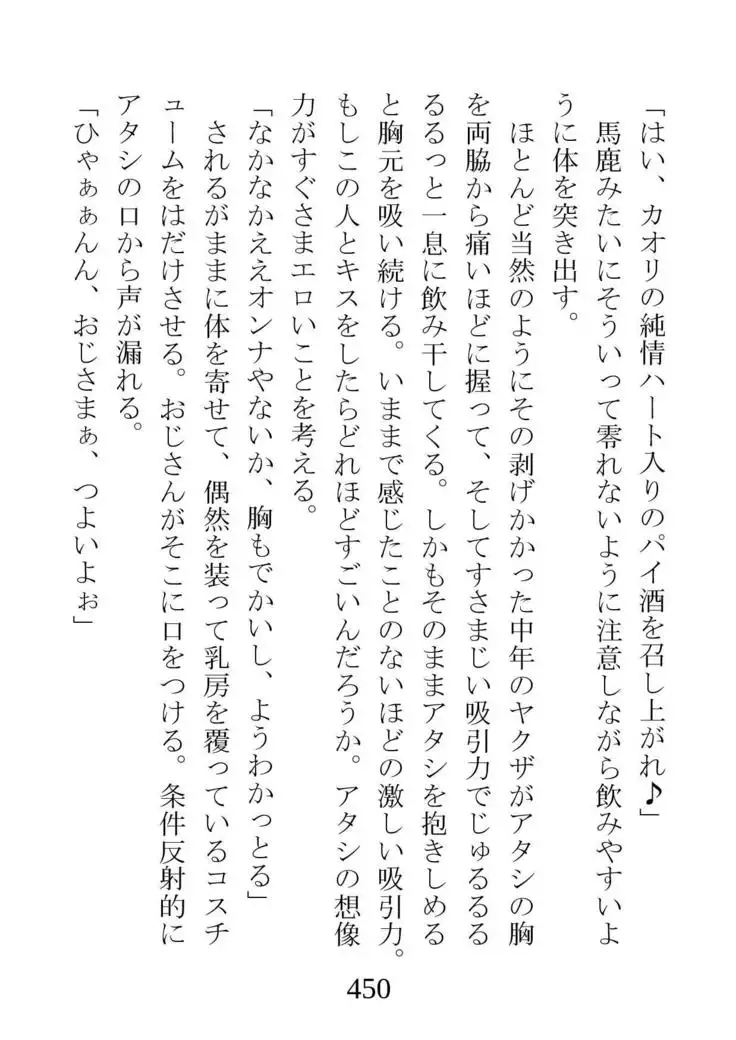 「はい、カオリの純情ハート入りのパイ酒を召し上がれ♪」
　馬鹿みたいにそういって零れないように注意しながら飲みやすいよ
うに体を突き出す。
　ほとんど当然のようにその剥げかかった中年のヤクザがアタシの胸
を両脇から痛いほどに握って、そしてすさまじい吸引力でじゅるるる
るるっと一息に飲み干してくる。しかもそのままアタシを抱きしめる
と胸元を吸い続ける。いままで感じたことのないほどの激しい吸引力。
もしこの人とキスをしたらどれほどすごいんだろうか。アタシの想像
力がすぐさまエロいことを考える。
「なかなかええオンナやないか、胸もでかいし、ようわかっとる」
　されるがままに体を寄せて、偶然を装って乳房を覆っているコスチ
ュームをはだけさせる。おじさんがそこに口をつける。条件反射的に
アタシの口から声が漏れる。
「ひゃぁぁんん、おじさまぁ、つよいよぉ」
450